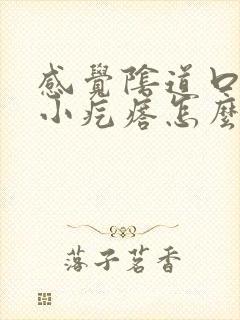 感覺陰道口
小疙瘩怎麼
落子茗香